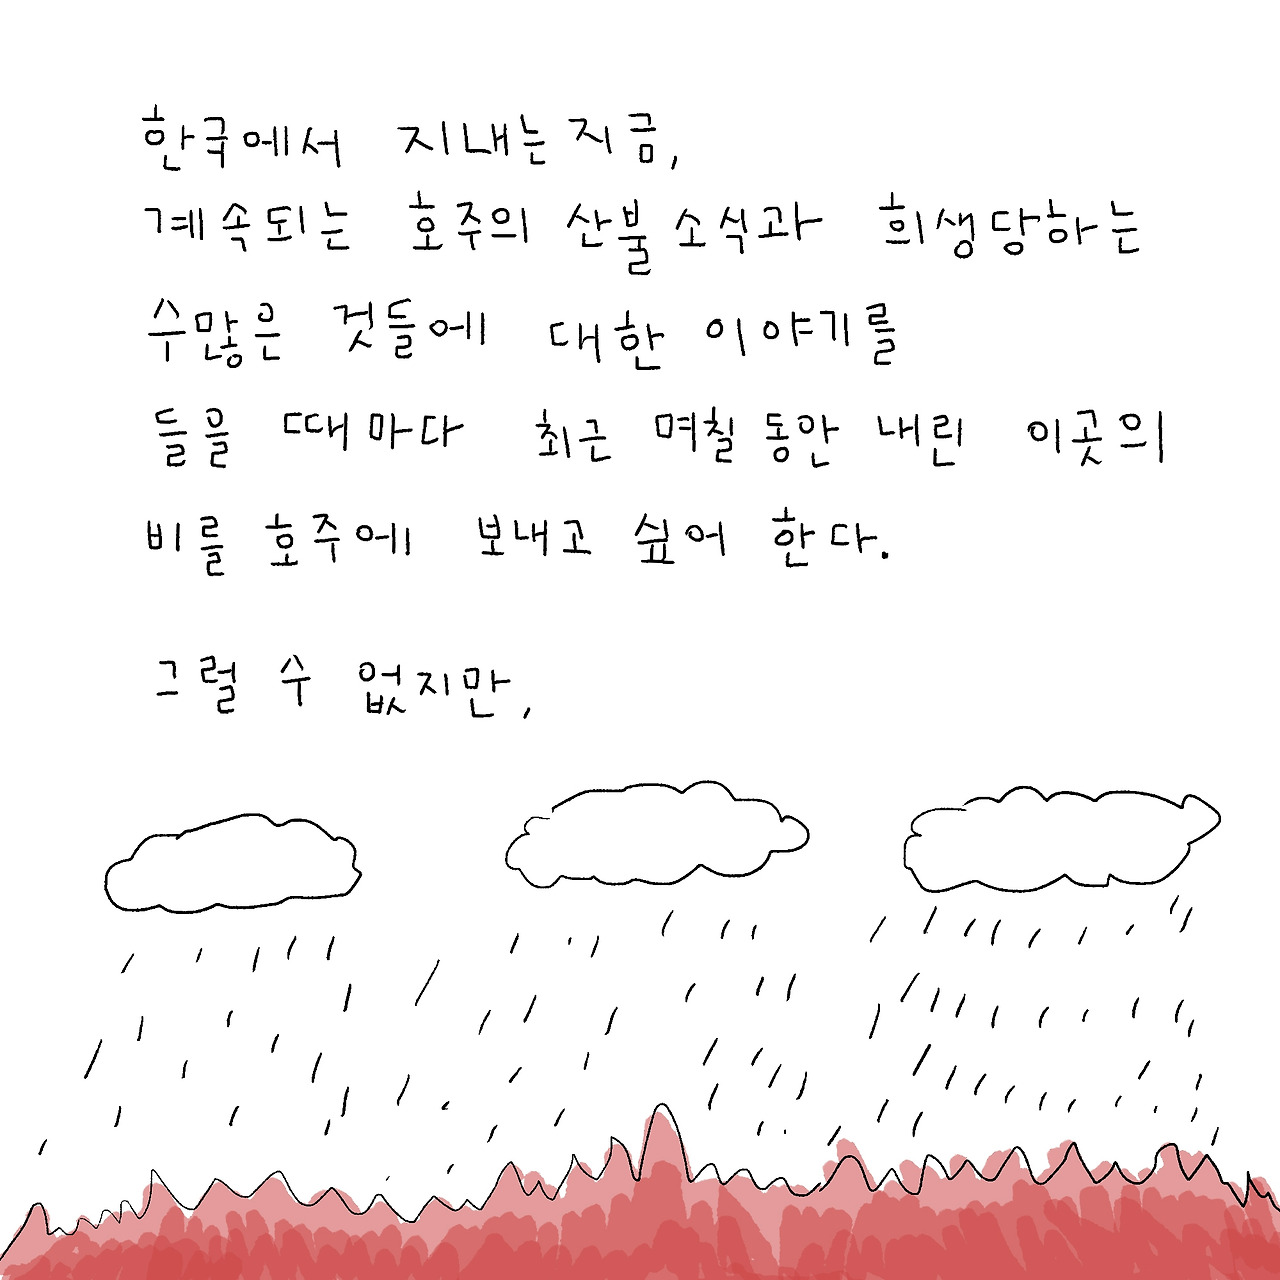 한국에서 지내는 지금,
계속되는 호주의 산불 소식과 희생당하는
수많은 것들에 대한 이야기를
들을 때마다 최근 며칠 동안 내린 이곳의
비를 호주에 보내고 싶어 한다.
그럴 수 없지만,